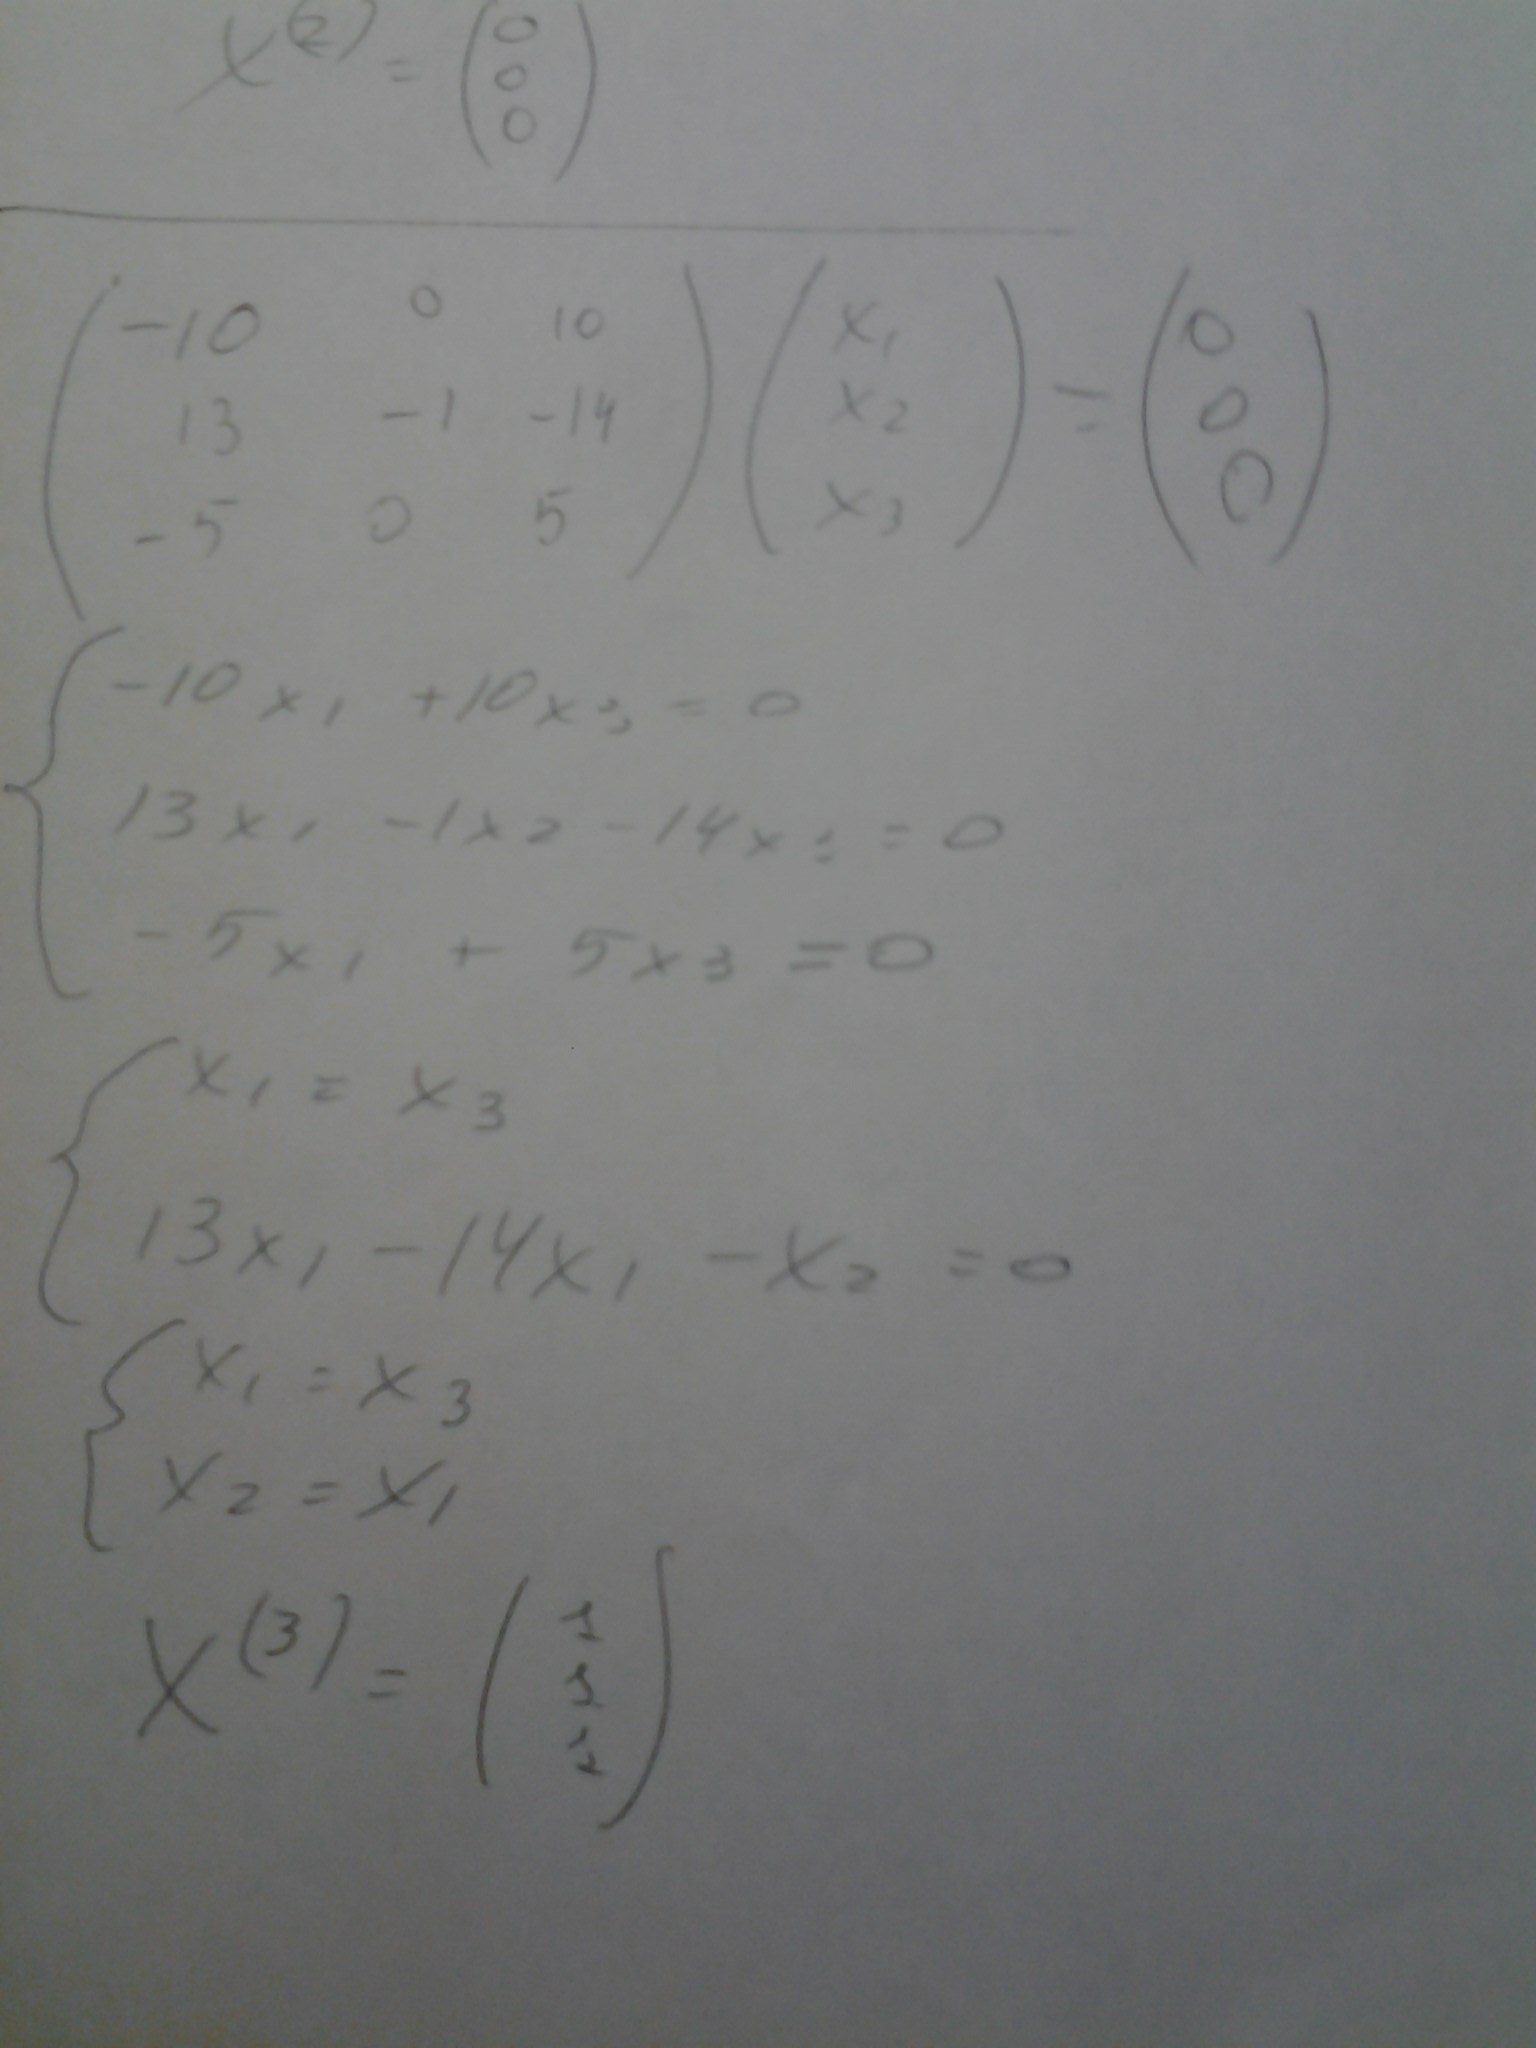 X^(2) = (0 0 0)
(-10 0 10) (x1) = (0)
(13 -1 -14) (x2) (0)
(-5 0 5) (x3) (0)
{ -10x1 +10x3 = 0
13x1 -1x2 -14x3 = 0
-5x1 + 5x3 = 0
{ x1 = x3
13x1 -14x1 -x2 = 0
{ x1 = x3
x2 = x1
X^(3) = (1 1 1)